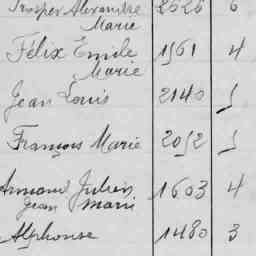 Prosper Alexandre 2626 6
Marie
Félix Emile 1961 4
Marie
Jean Louis 2140 5
François Marie 2052 5
Armand Julien 1603 4
Jean Marie
Alphonse 1480 3